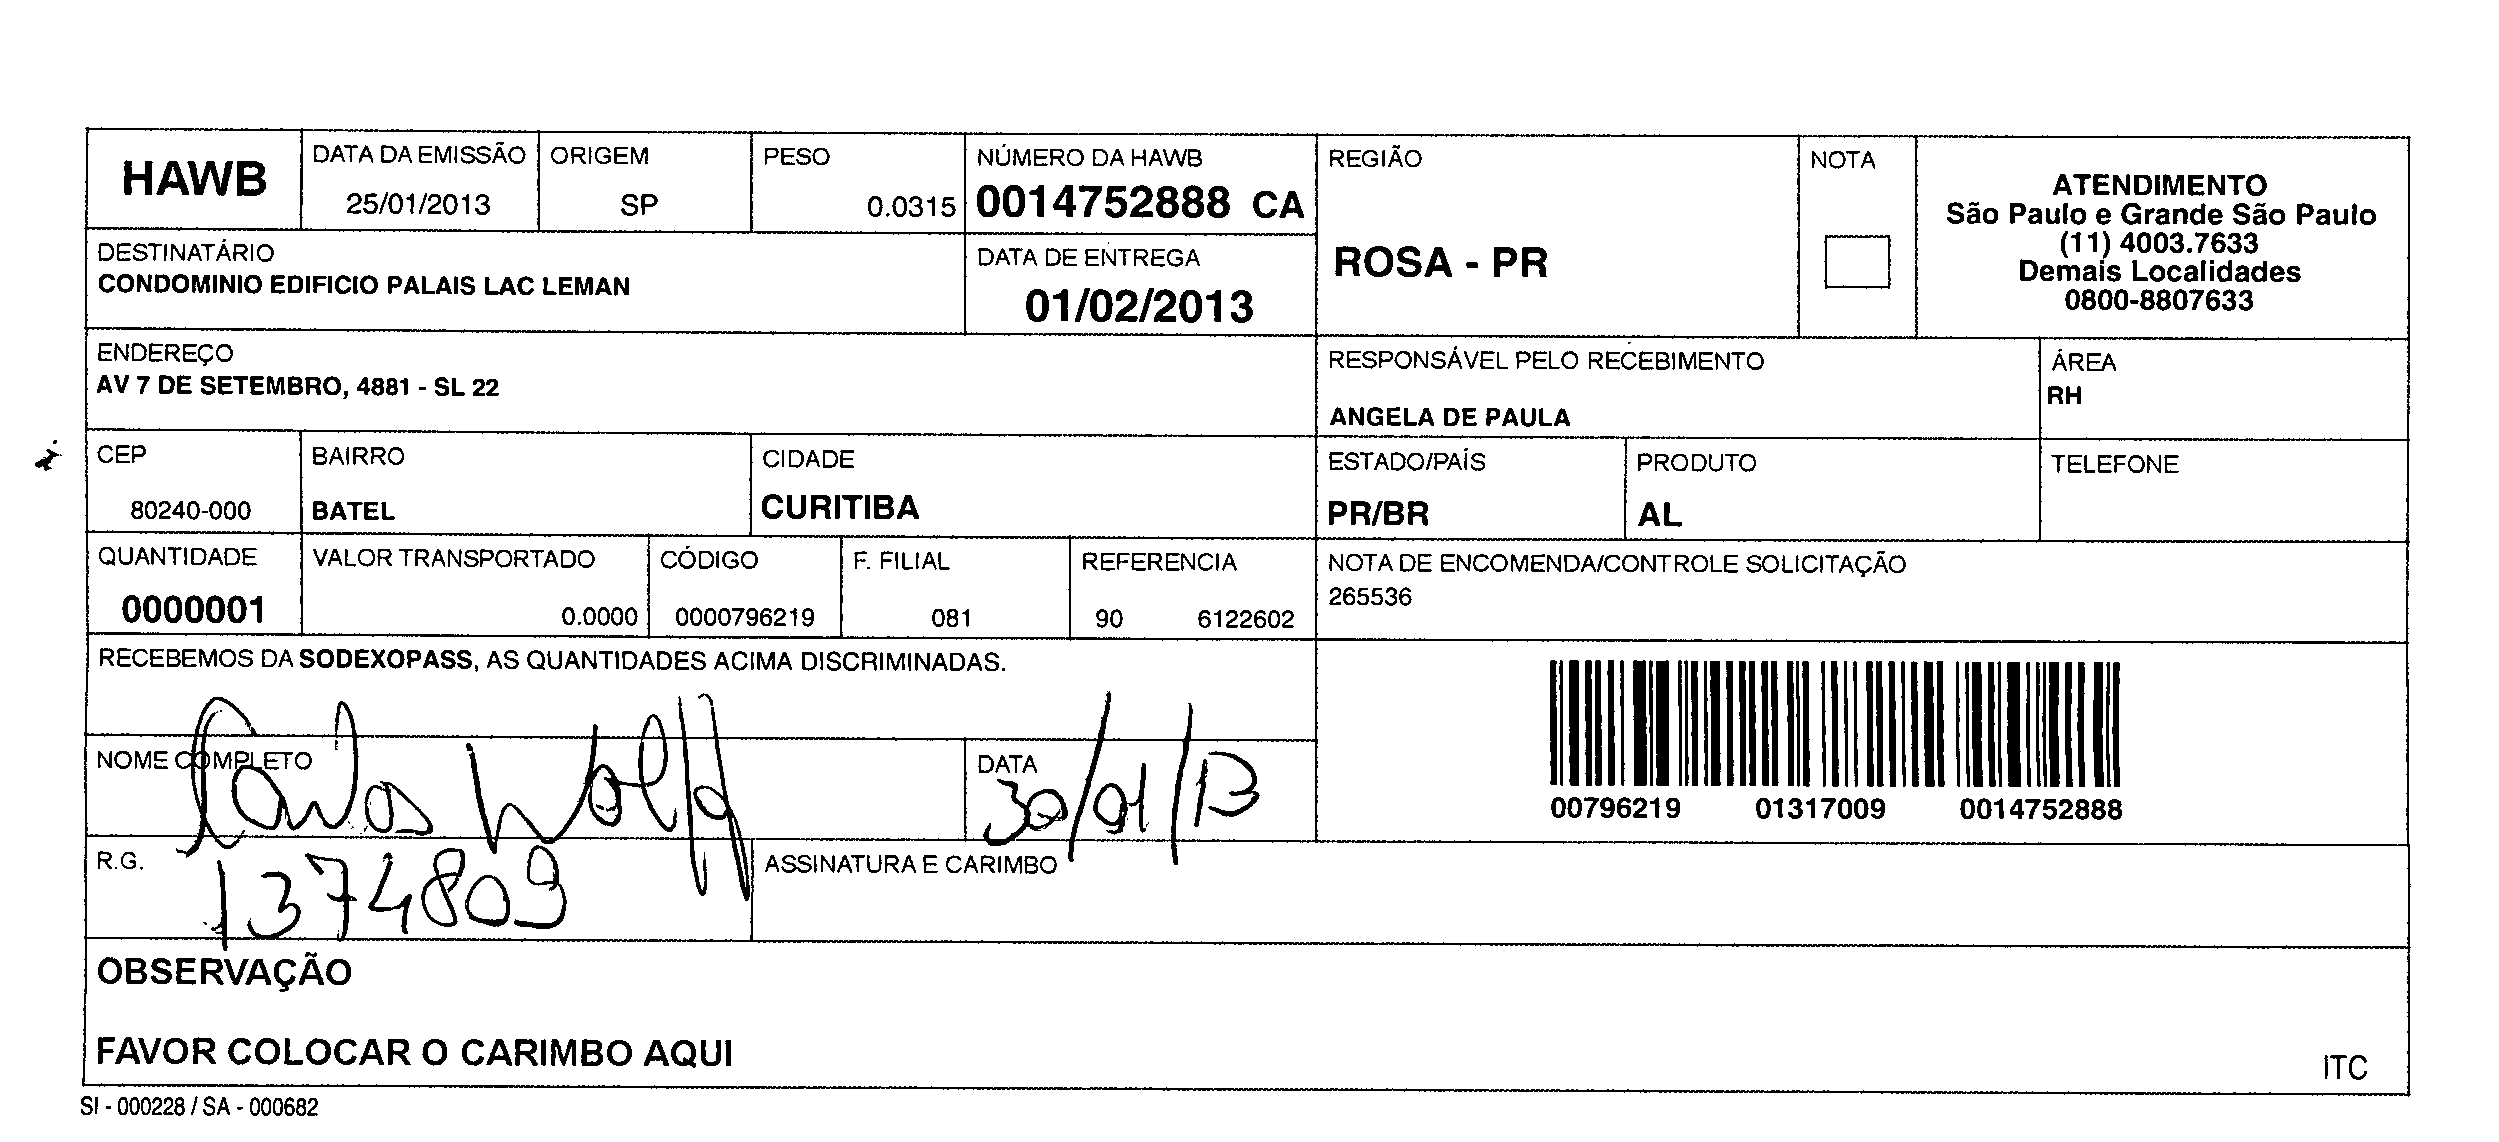 HAWB
DATA DA EMISSÃO
25/01/2013
ORIGEM
SP
PESO
0.0315
NÚMERO DA HAWB
0014752888 CA
REGIÃO
ROSA - PR
NOTA
ATENDIMENTO
São Paulo e Grande São Paulo
(11) 4003.7633
Demais Localidades
0800-8807633
DESTINATÁRIO
CONDOMINIO EDIFICIO PALAIS LAC LEMAN
DATA DE ENTREGA
01/02/2013
ENDEREÇO
AV 7 DE SETEMBRO, 4881 - SL 22
RESPONSÁVEL PELO RECEBIMENTO
ANGELA DE PAULA
ÁREA
RH
CEP
80240-000
BAIRRO
BATEL
CIDADE
CURITIBA
ESTADO/PAÍS
PR/BR
PRODUTO
AL
TELEFONE
QUANTIDADE
0000001
VALOR TRANSPORTADO
0.0000
CÓDIGO
0000796219
F. FILIAL
081
REFERENCIA
90 6122602
NOTA DE ENCOMENDA/CONTROLE SOLICITAÇÃO
265536
RECEBEMOS DA SODEXOPASS, AS QUANTIDADES ACIMA DISCRIMINADAS.
NOME COMPLETO
Carlos Wolff
DATA
30/01/13
00796219 01317009 0014752888
R.G.
1374809
ASSINATURA E CARIMBO
OBSERVAÇÃO
FAVOR COLOCAR O CARIMBO AQUI
ITC
SI - 000228 / SA - 000682